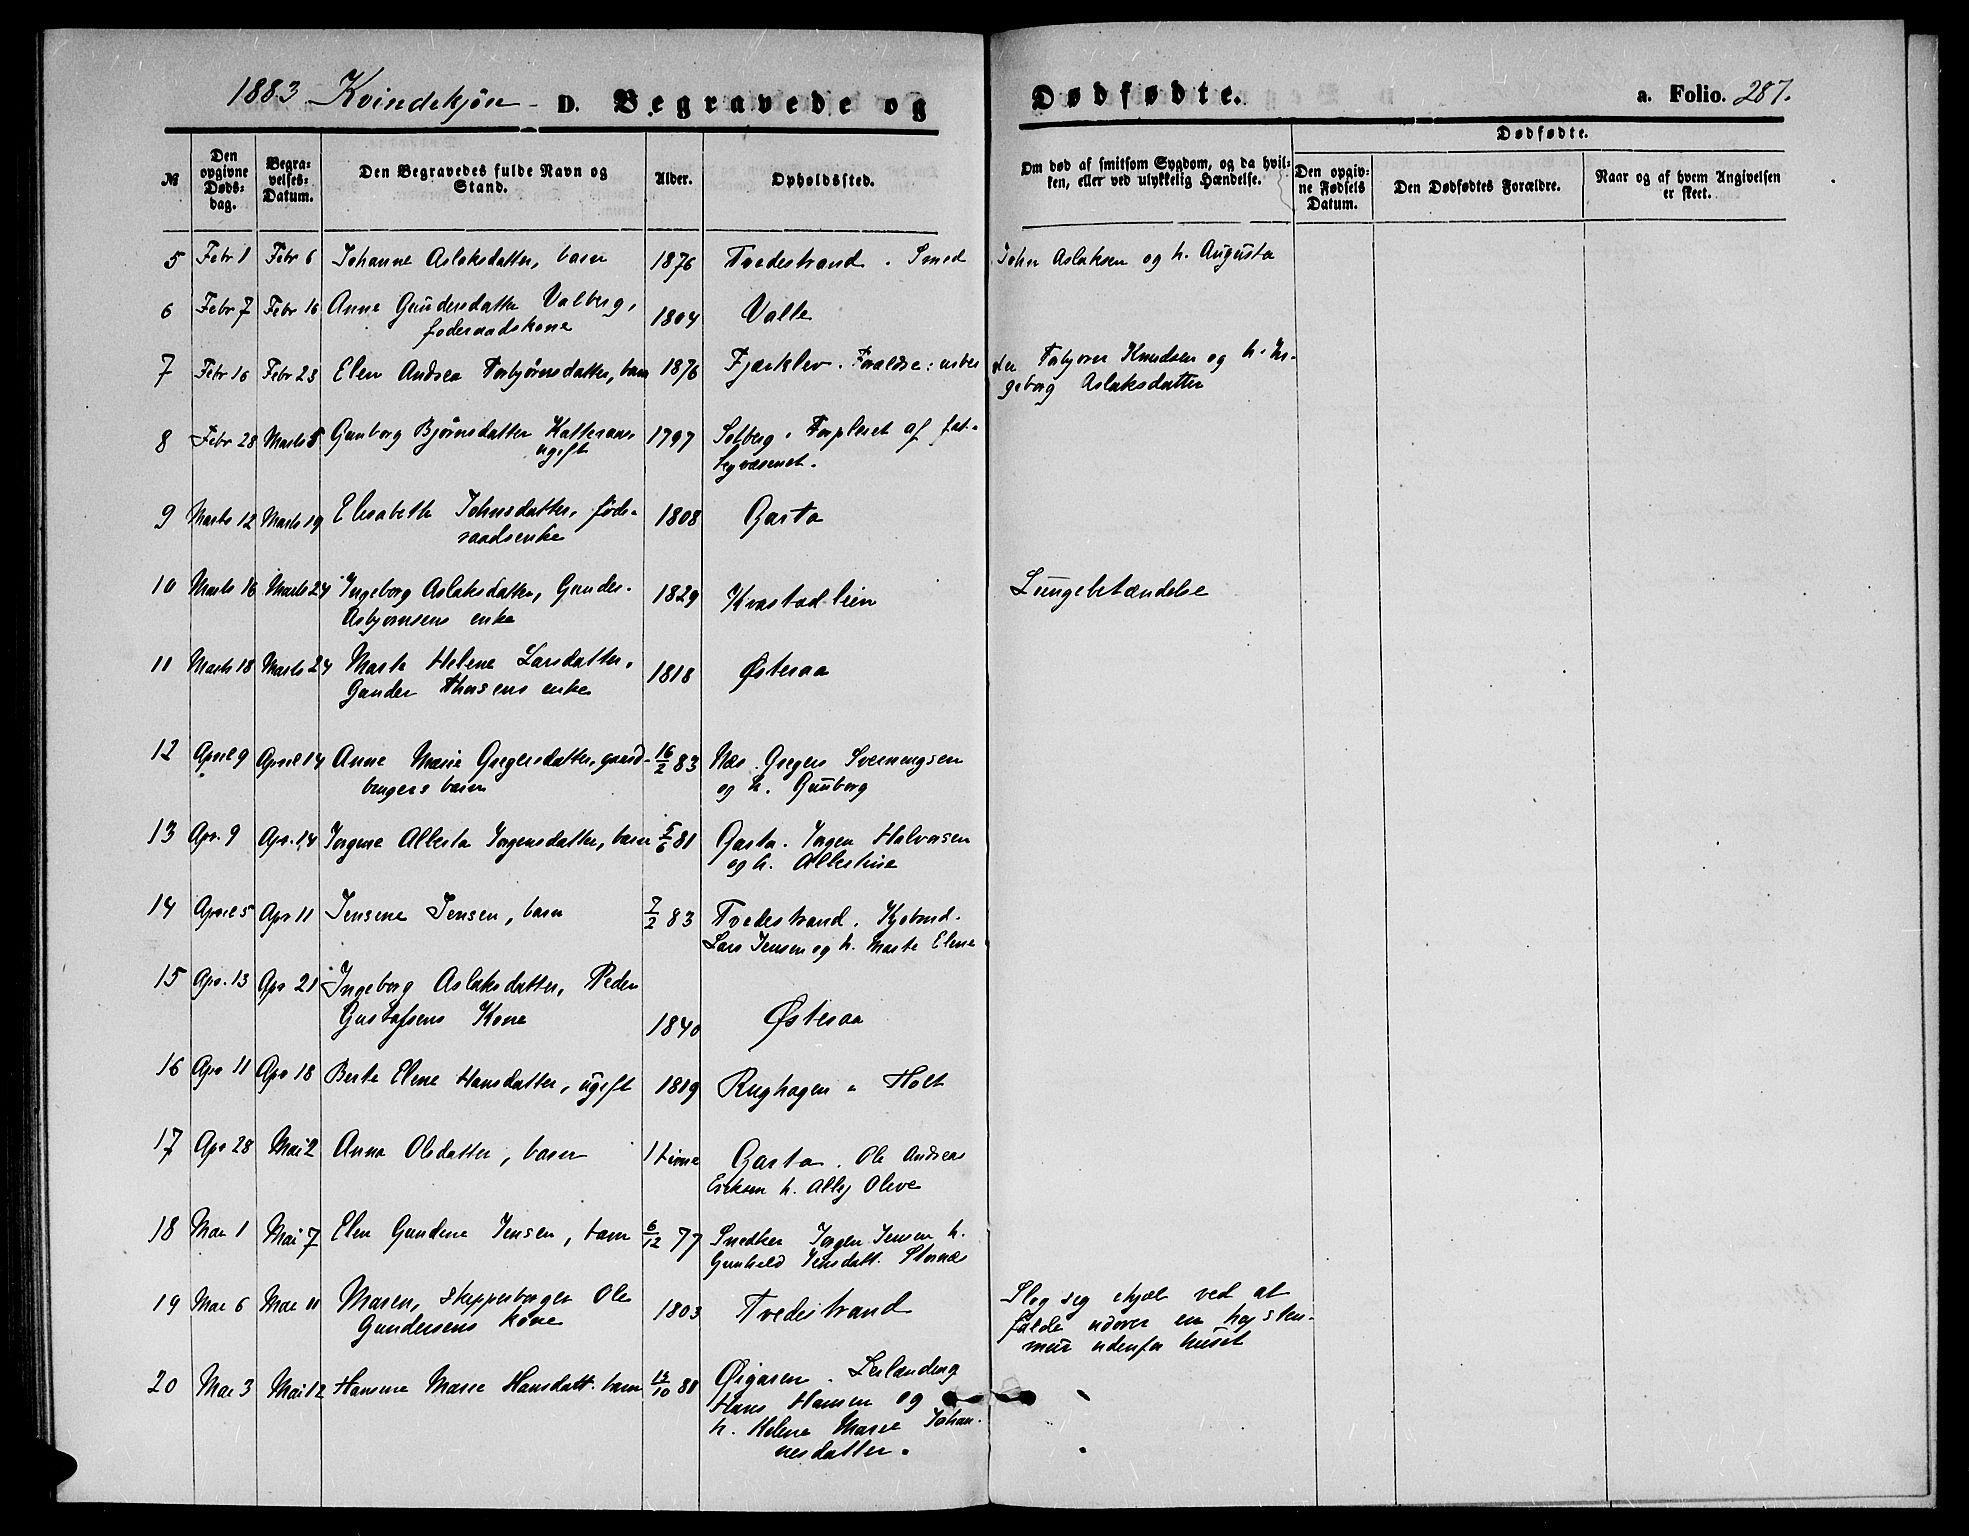 1883 Kvindekjøn D. Begravede og Dødfødte. a. Folio. 287.
Dødfødte.
№ Den opgivne Døds-dag. Begra-velses-Datum. Den Begravedes fulde Navn og Stand. Alder. Opholdssted. Om død af smitsom Sygdom, og da hvil-ken, eller ved ulykkelig Hændelse. Den opgiv-ne Fødsels Datum. Den Dødfødtes Forældre. Naar og af hvem Angivelsen er skeet.
5 Febr 1 Febr 6 Johanne Aslaksdatter, barn 1876 Tvedestrand. Smed John Aslaksen og h. Augusta
6 Febr 7 Febr 16 Anne Gundersdatter Valberg,
foderaadskone 1804 Valle
7 Febr 16 Febr 23 Elen Andrea Torbjørnsdatter, barn 1876 Fjærklev. Forældre: Torbjørn Knudsen og h. In-
geborg Aslaksdatter
8 Febr 28 Marts 5 Gunborg Bjørnsdatter
ugift 1797 Solberg. Forpleiet af fat-
tigvæsenet.
9 Marts 12 Marts 19 Elisabeth Johnsdatter, føde-
raadsenke 1808 Garta
10 Marts 16 Marts 24 Ingeborg Aslaksdatter, Gunder
Asbjørnsens enke 1829 Kvastadlien Lungebetændelse
11 Marts 18 Marts 24 Marte Helene Larsdatter,
Gunder Thorsens enke 1818 Østeraa
12 April 9 April 14 Anne Marie Gregersdatter, gaard-
brugers barn 16/2 83 Næs. Gregers Svenningsen
og h. Gunborg
13 Apr. 9 Apr. 14 Jørgine Alberta Jørgensdatter, barn 5/6 81 Garta. Jørgen Halvorsen
og h. Albertine
14 April 5 Apr 11 Jensine Jensen, barn 7/2 83 Tvedestrand. Kjøbmd.
Lars Jensen og h. Marte Elene
15 Apr. 13 Apr 21 Ingeborg Aslaksdatter, Peder
Gustafsens Kone 1840 Østeraa
16 Apr 11 Apr 18 Berte Elene Hansdatter, ugift 1819 Rughagen. Holt
17 Apr 28 Mai 2 Anna Olsdatter, barn 1 time Garta. Ole Andreas
Eriksen h. Olive
18 Mai 1 Mai 7 Elen Gundine Jensen, barn 6/12 77 Snedker Jørgen Jensen h.
Gunhild Jensdatt. Stornæs
19 Mai 6 Mai 11 Maren, skipperborger Ole
Gundersens kone 1803 Tvedestrand Slog seg ihjæl ved at
falde udover en høi sten-
mur udenfor huset
20 Mai 3 Mai 12 Hansine Marie Hansdatt. barn Øigaren. Leilænding
Hans Hansen og
h. Helene Marie Johan-
nesdatter.